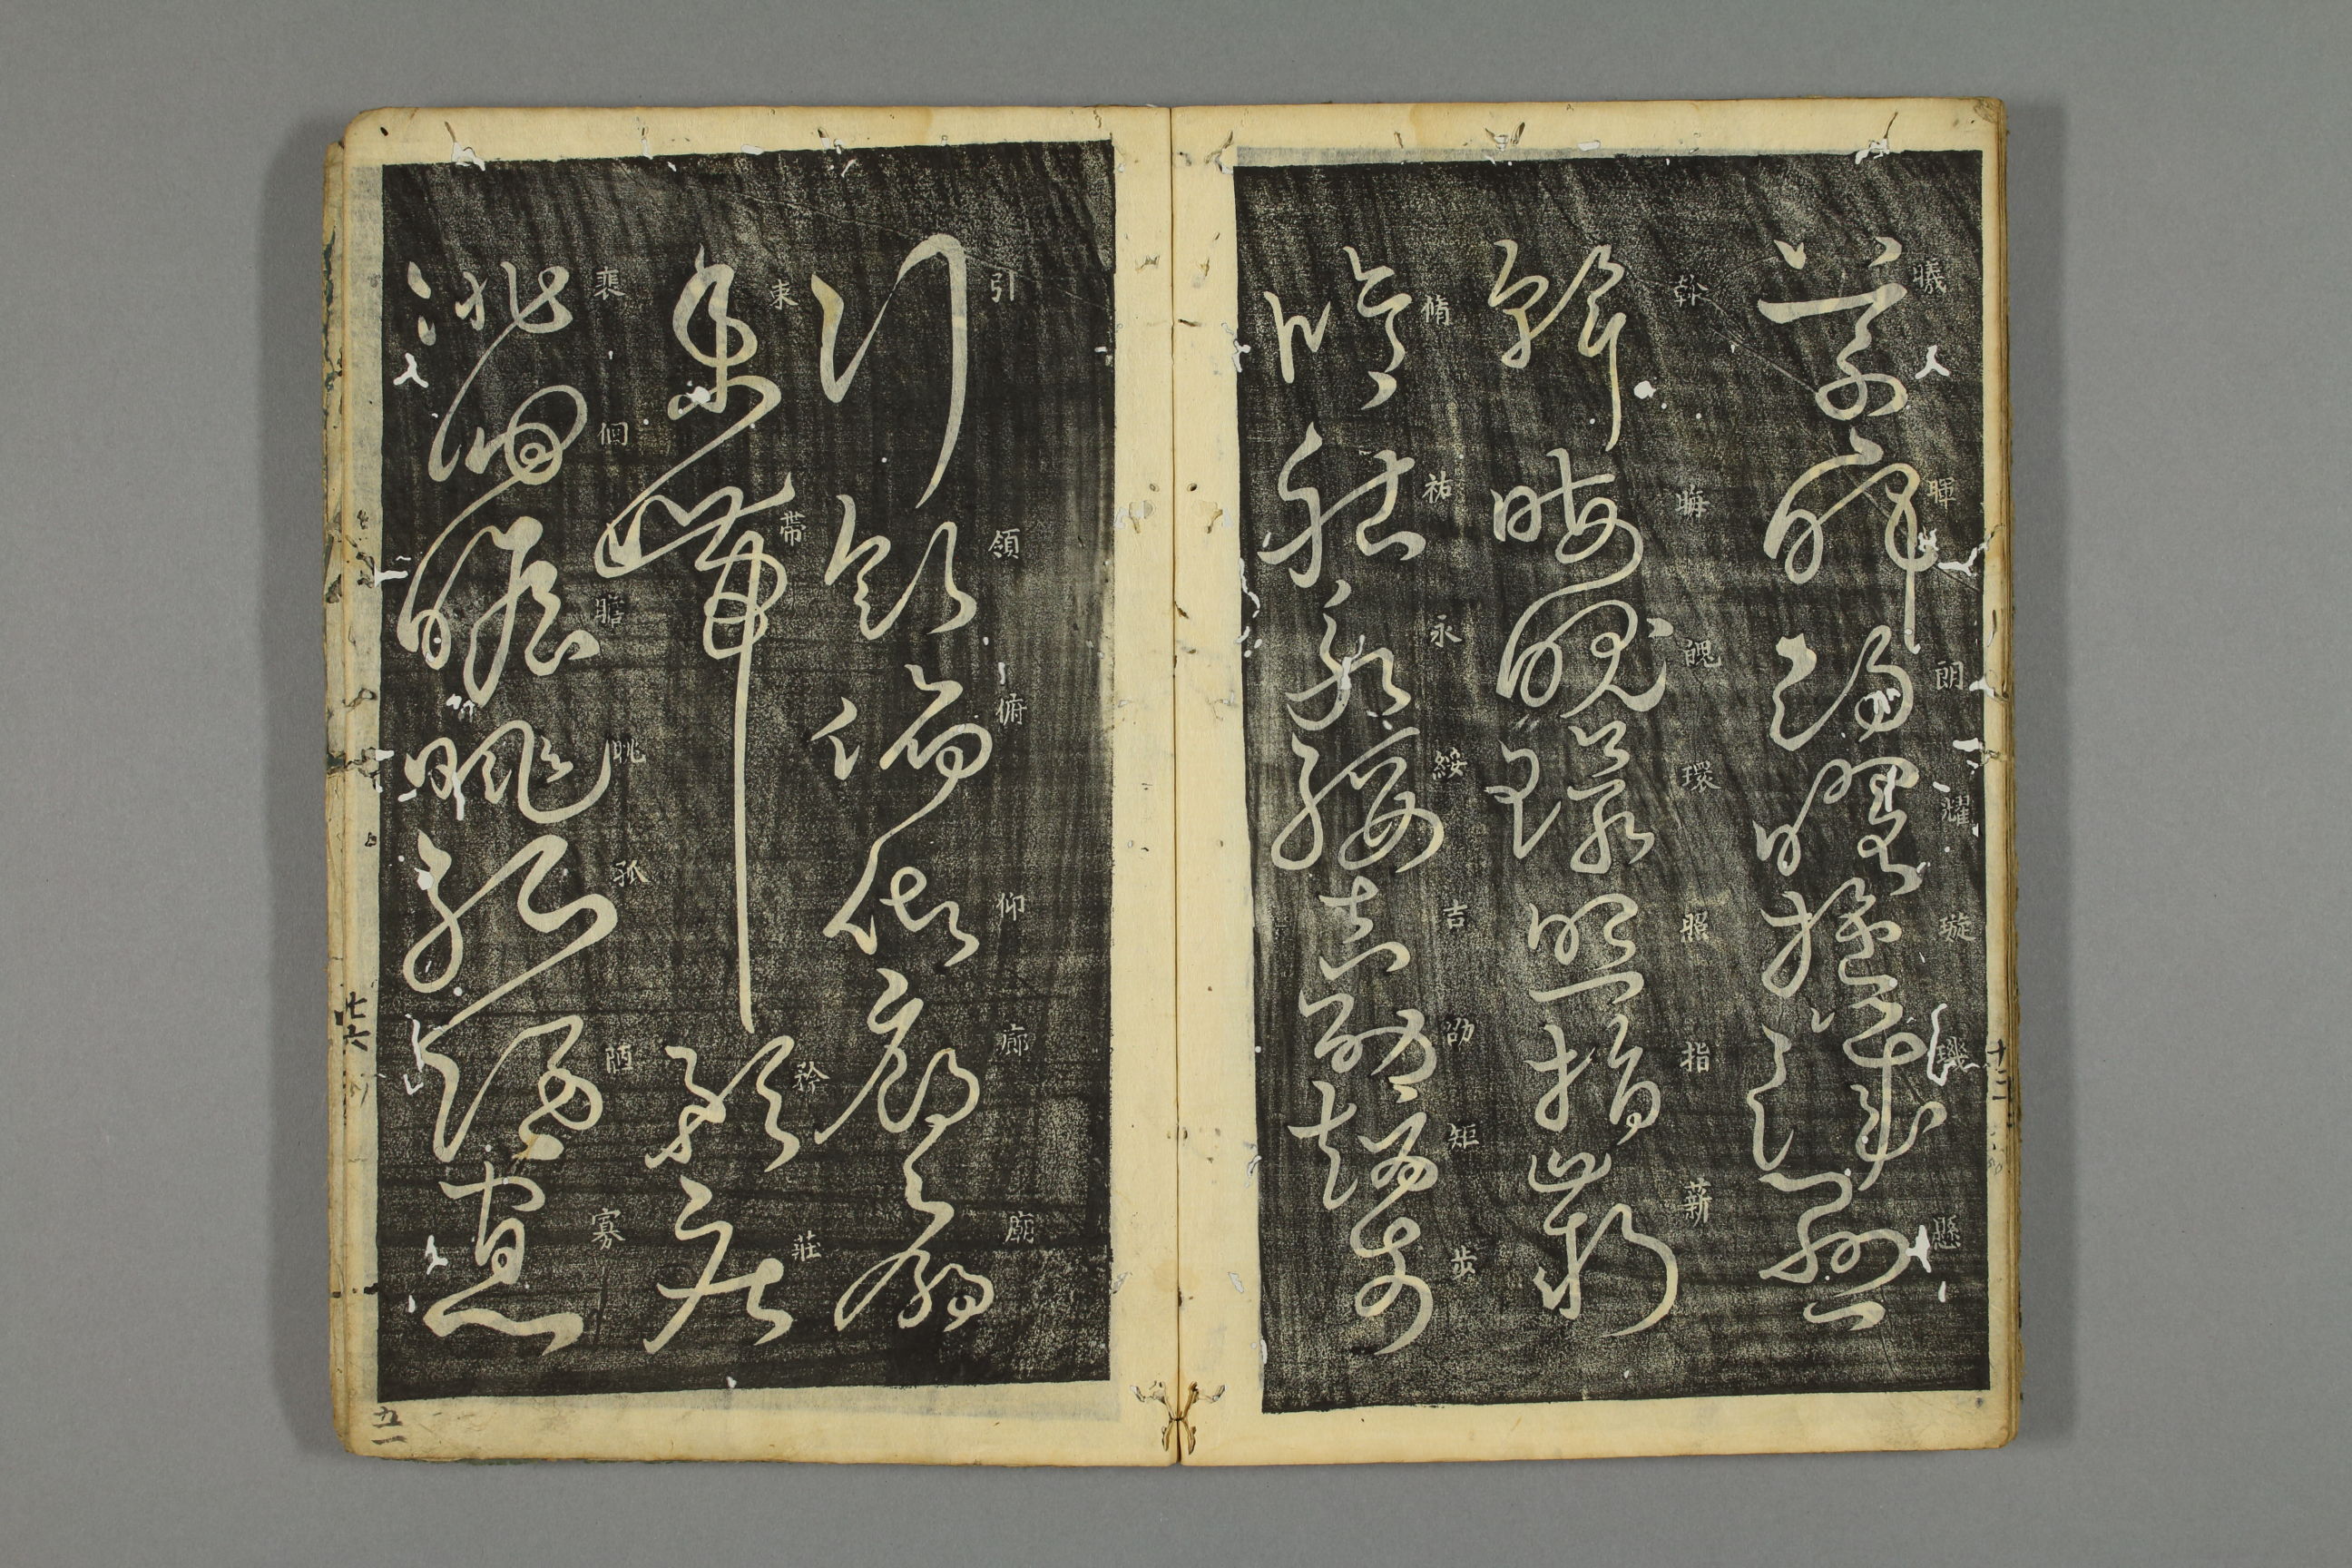 曦暉朗耀璇璣懸
斡晦魄環照指薪
脩祐永綏吉劭矩步
引領俯仰廊廟
束帶矜莊
裴徊瞻眺孤陋寡